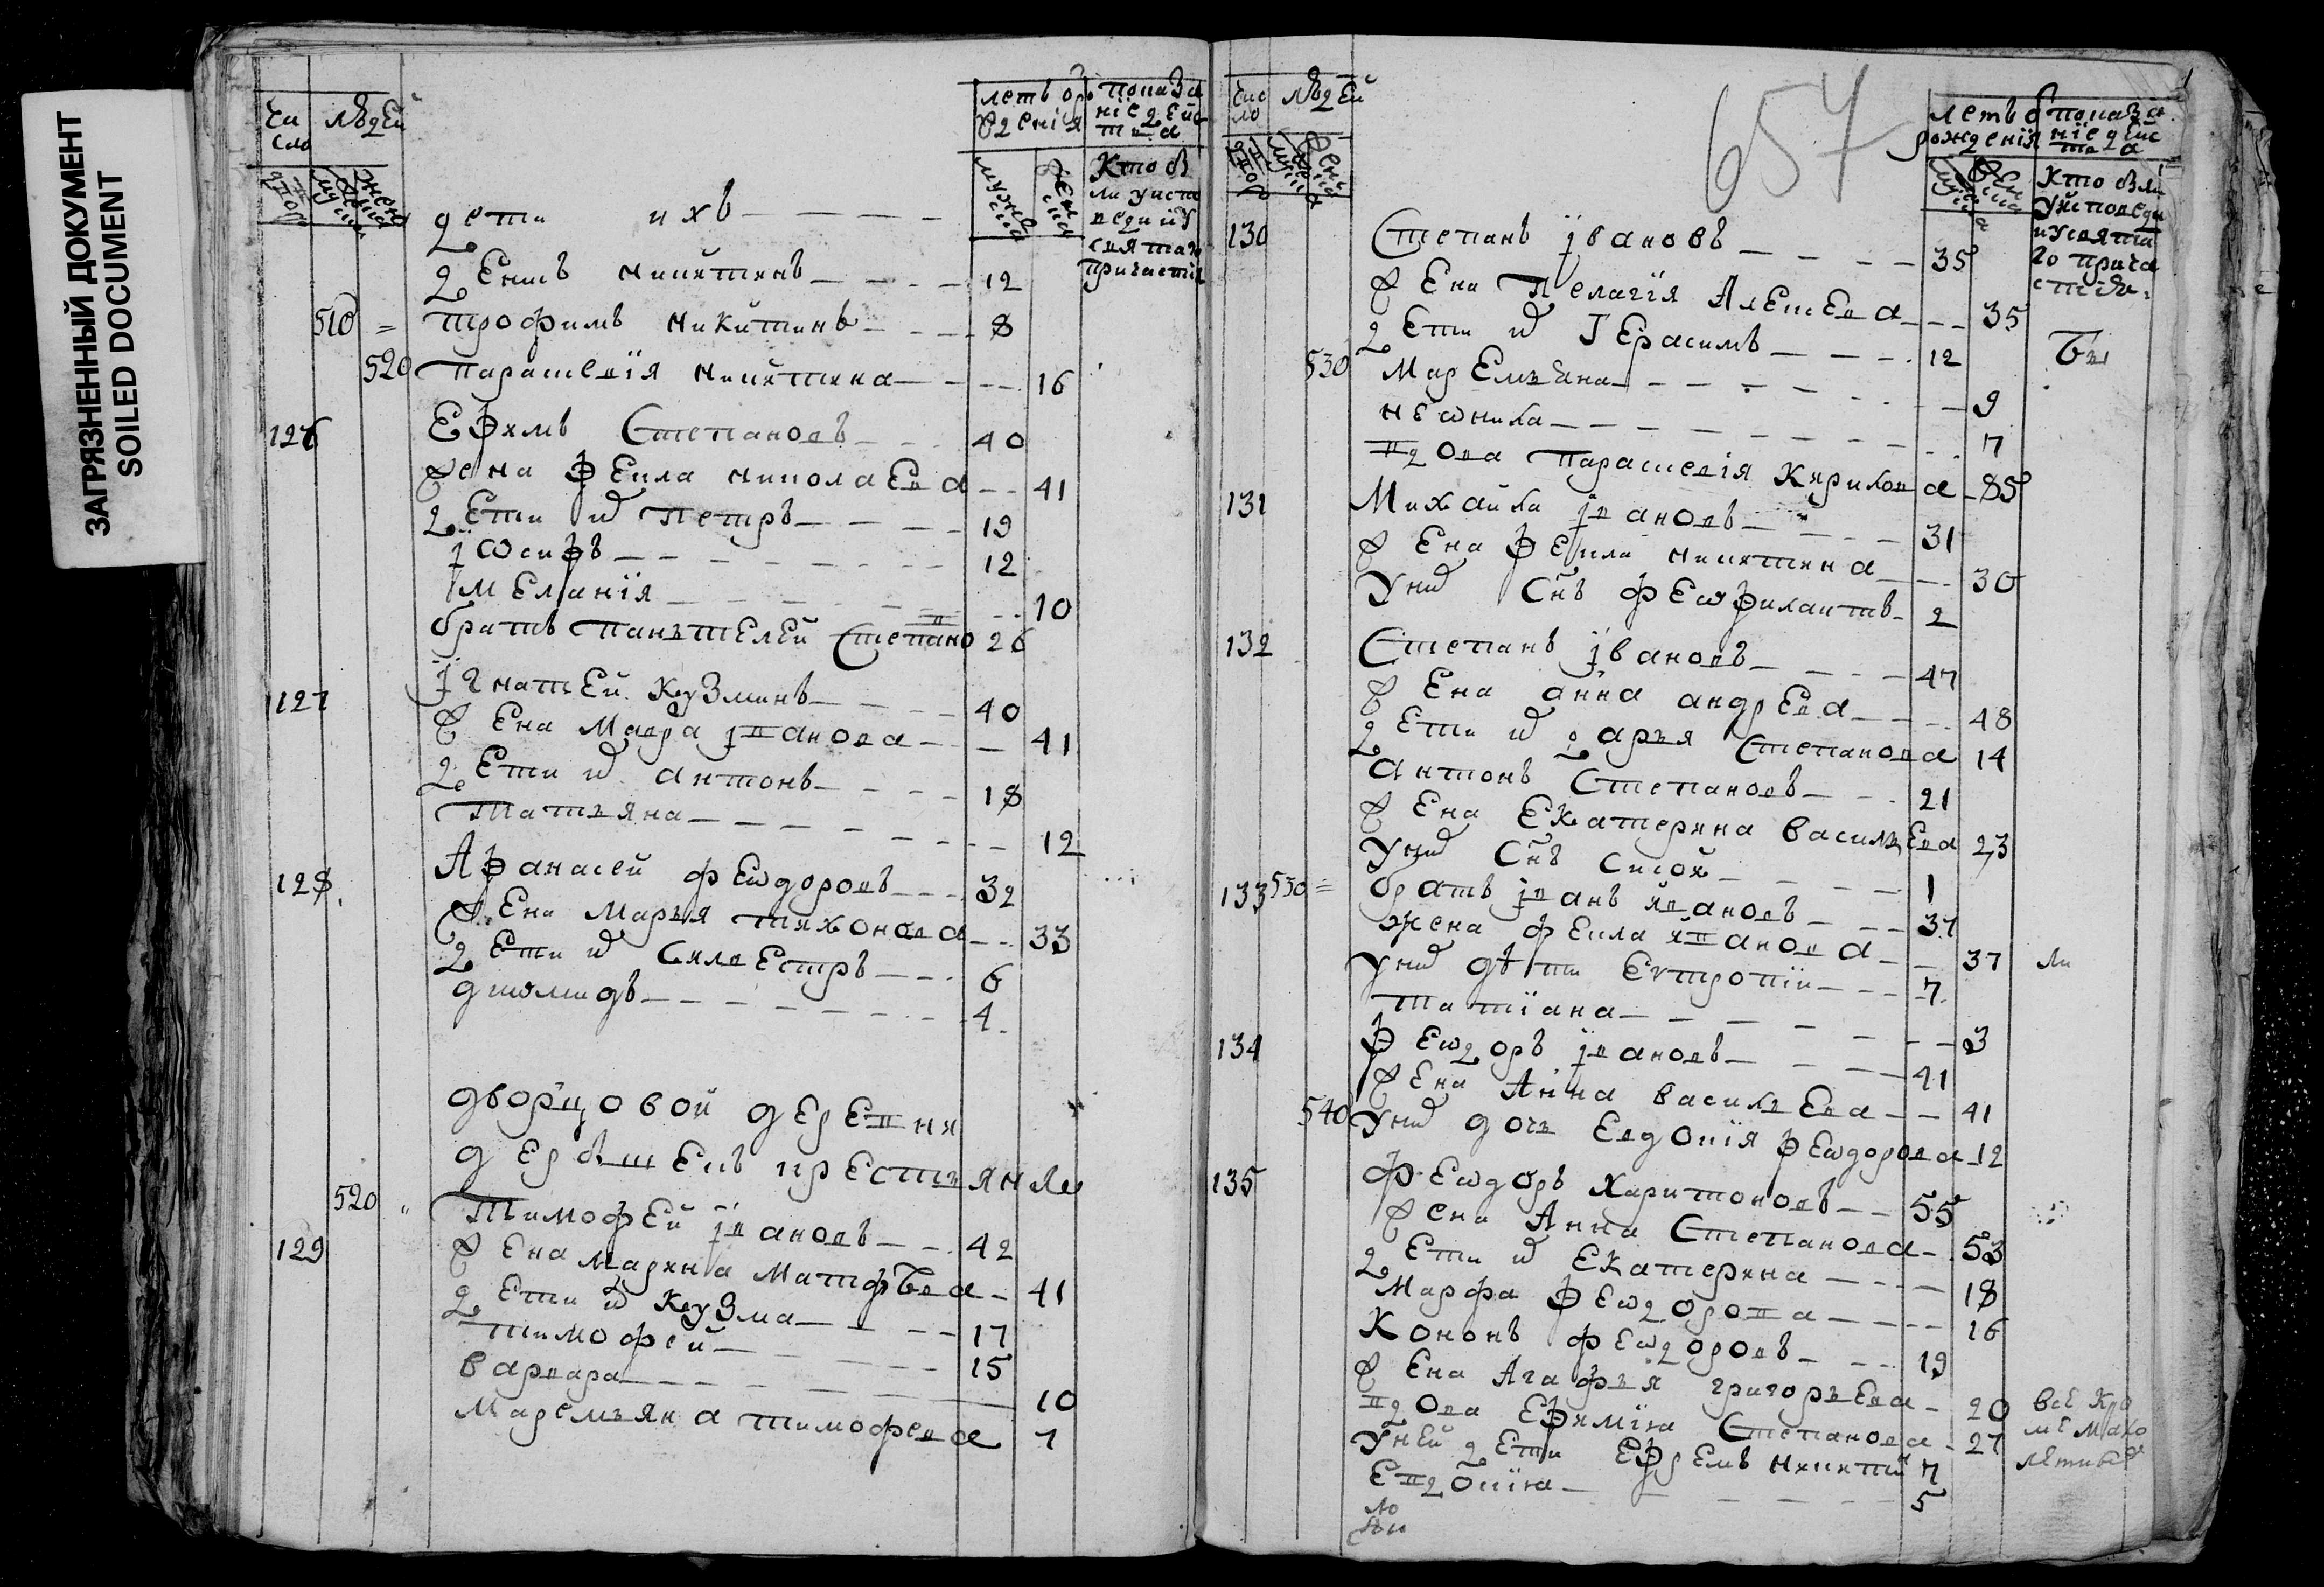 ЗАГРЯЗНЕННЫЙ ДОКУМЕНТ
SOILED DOCUMENT
Чи сло людей
летъ о рождения
показание действа
Кто былъ у исповеди и у святаго причастия
дети ихъ
Денисъ Никитинъ 12
510 = Трофимъ Никитинъ 8
520 Параскевїя Никитина 16
126 Ефимъ Степановъ 40
жена Фекла Николаева 41
дети их Петръ 19
Іѡсифъ 12
Меланїя 10
братъ Пантелей Степано 26
127 Ігнатей Кузминъ 40
жена Мавра Іванова 41
дети их Антонъ 18
Татьяна 12
128 Афанасей Феѡдоровъ 32
жена Марья Тихонова 33
дети их Силвестръ 6
Диѡмидъ 4
дворцовой деревни
крестьяня
520 Тимофей Івановъ 42
129 жена Марина Матфѣева 41
дети их Кузма 17
Тимофей 15
Варвара 10
Маремьяна Тимофеева 7
657
Чис ло людей
летъ о рожденїя
показанїе действа
Кто был у исповеди и у святаго причастїя
130 Степанъ Івановъ 35
жена Пелагїя Алексева 35
дети их Герасимъ 12
530 Маремьяна 9
Неѡнила 7
вдова Параскевїя Кирилова 85
131 Михайла Івановъ 31
жена Фекла Никитина 30
у них Снъ Феѡфилактъ 2
132 Степанъ Івановъ 47
жена Анна Андреева 48
дети их Дарья Степанова 14
Антонъ Степановъ 21
жена Екатерина Васильева 23
у них Снъ Сисой 1
133 530 = братъ Іванъ Ивановъ 37
жена Фекла Иванова 37
у них дѣти Евтропїи 7
Татїана 3
134 Феѡдоръ Івановъ 41
жена Анна Васильева 41
540 у них дочь Евдокїя Феѡдорова 12
135 Феѡдоръ Харитоновъ 55
жена Анна Степанова 53
дети их Екатерина 18
Марфа Феѡдорова 16
Кононъ Феѡдоровъ 19
жена Агафья Григорьева 20
вдова Ефимїа Степанова 27
у ней дети Ефремъ Никити 7
Евдокїа 5
Бы
ли
все кро
ме мало
летныхъ